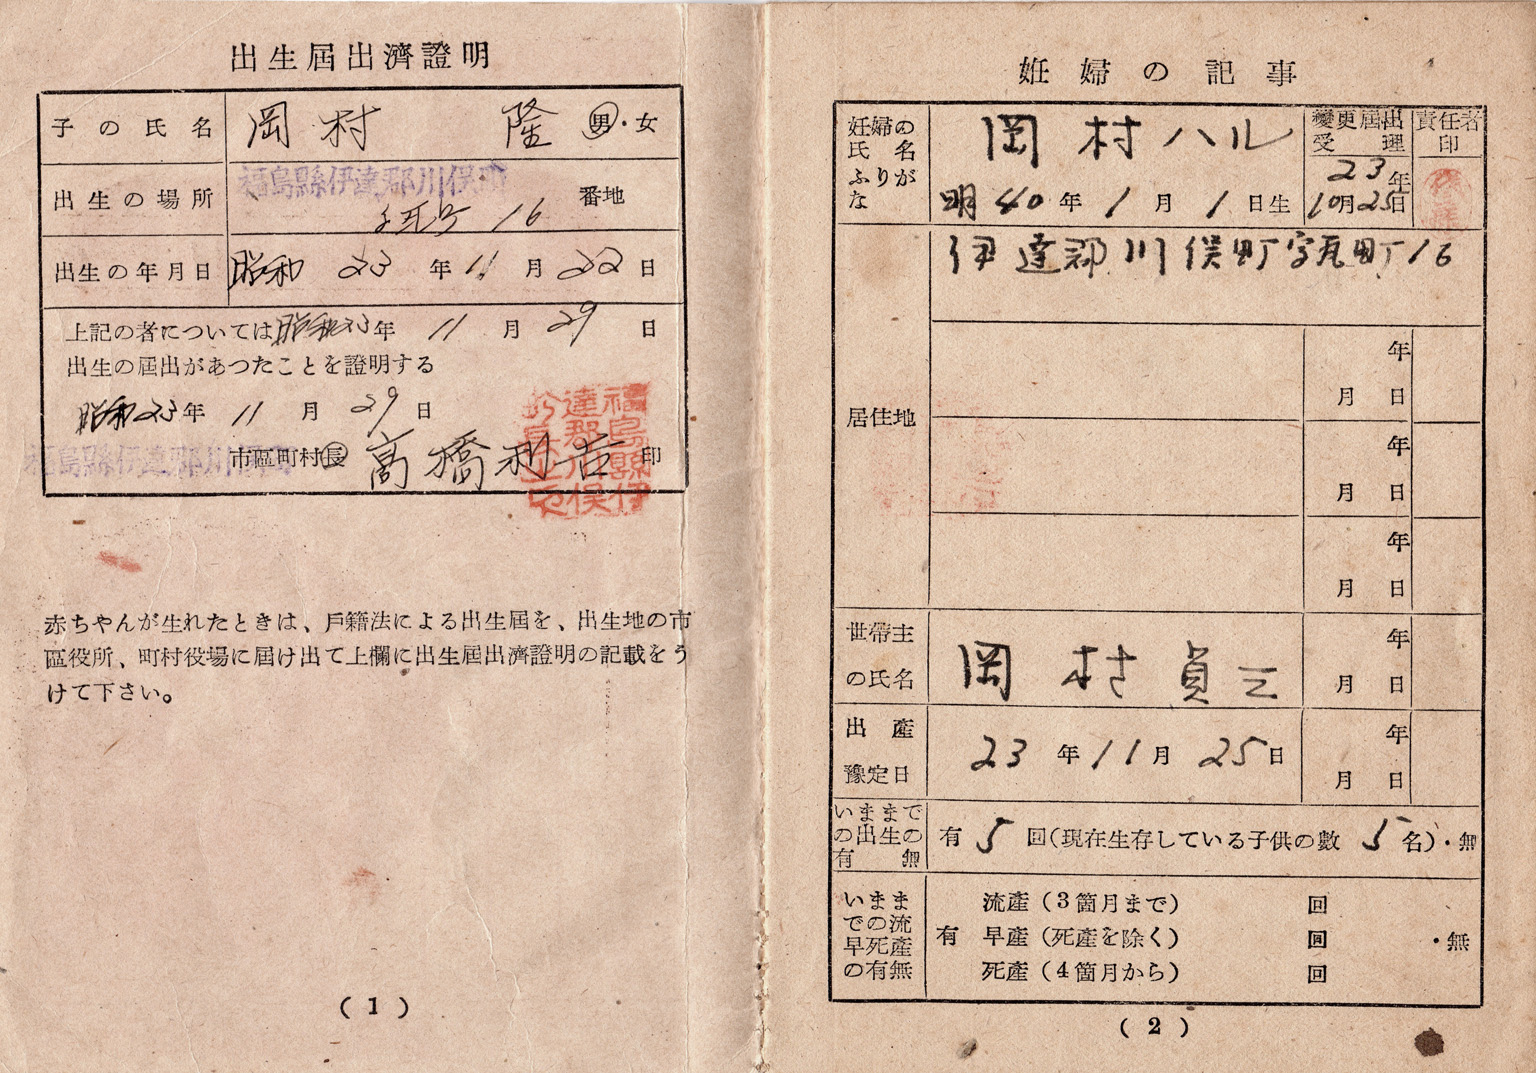 出生屆出濟證明
子の氏名 岡村 隆 男・女
出生の場所 福島縣伊達郡川俣町
字瓦町 16 番地
出生の年月日 昭和 23 年 11 月 22 日
上記の者については昭和23年 11 月 29 日
出生の屆出があつたことを證明する
昭和23年 11 月 29 日
福島縣伊達郡川俣町 市區町村長 高橋利吉 印
赤ちやんが生れたときは、戶籍法による出生屆を、出生地の市
區役所、町村役場に屆け出て上欄に出生屆出濟證明の記載をう
けて下さい。
(1)
妊婦の記事
妊婦の氏名ふりがな 岡村ハル
明 40 年 1 月 1 日生
變更屆出受理 23年10月25日
責任者印
居住地 伊達郡川俣町字瓦町16
年
月 日
年
月 日
年
月 日
世帶主の氏名 岡村貞三 年
月 日
出產豫定日 23 年 11 月 25 日 年
月 日
いままでの出生の有無 有 5 回(現在生存している子供の數 5 名)・無
いままでの流早死產の有無 有 流產(3箇月まで) 回
早產(死產を除く) 回 ・無
死產(4箇月から) 回
(2)